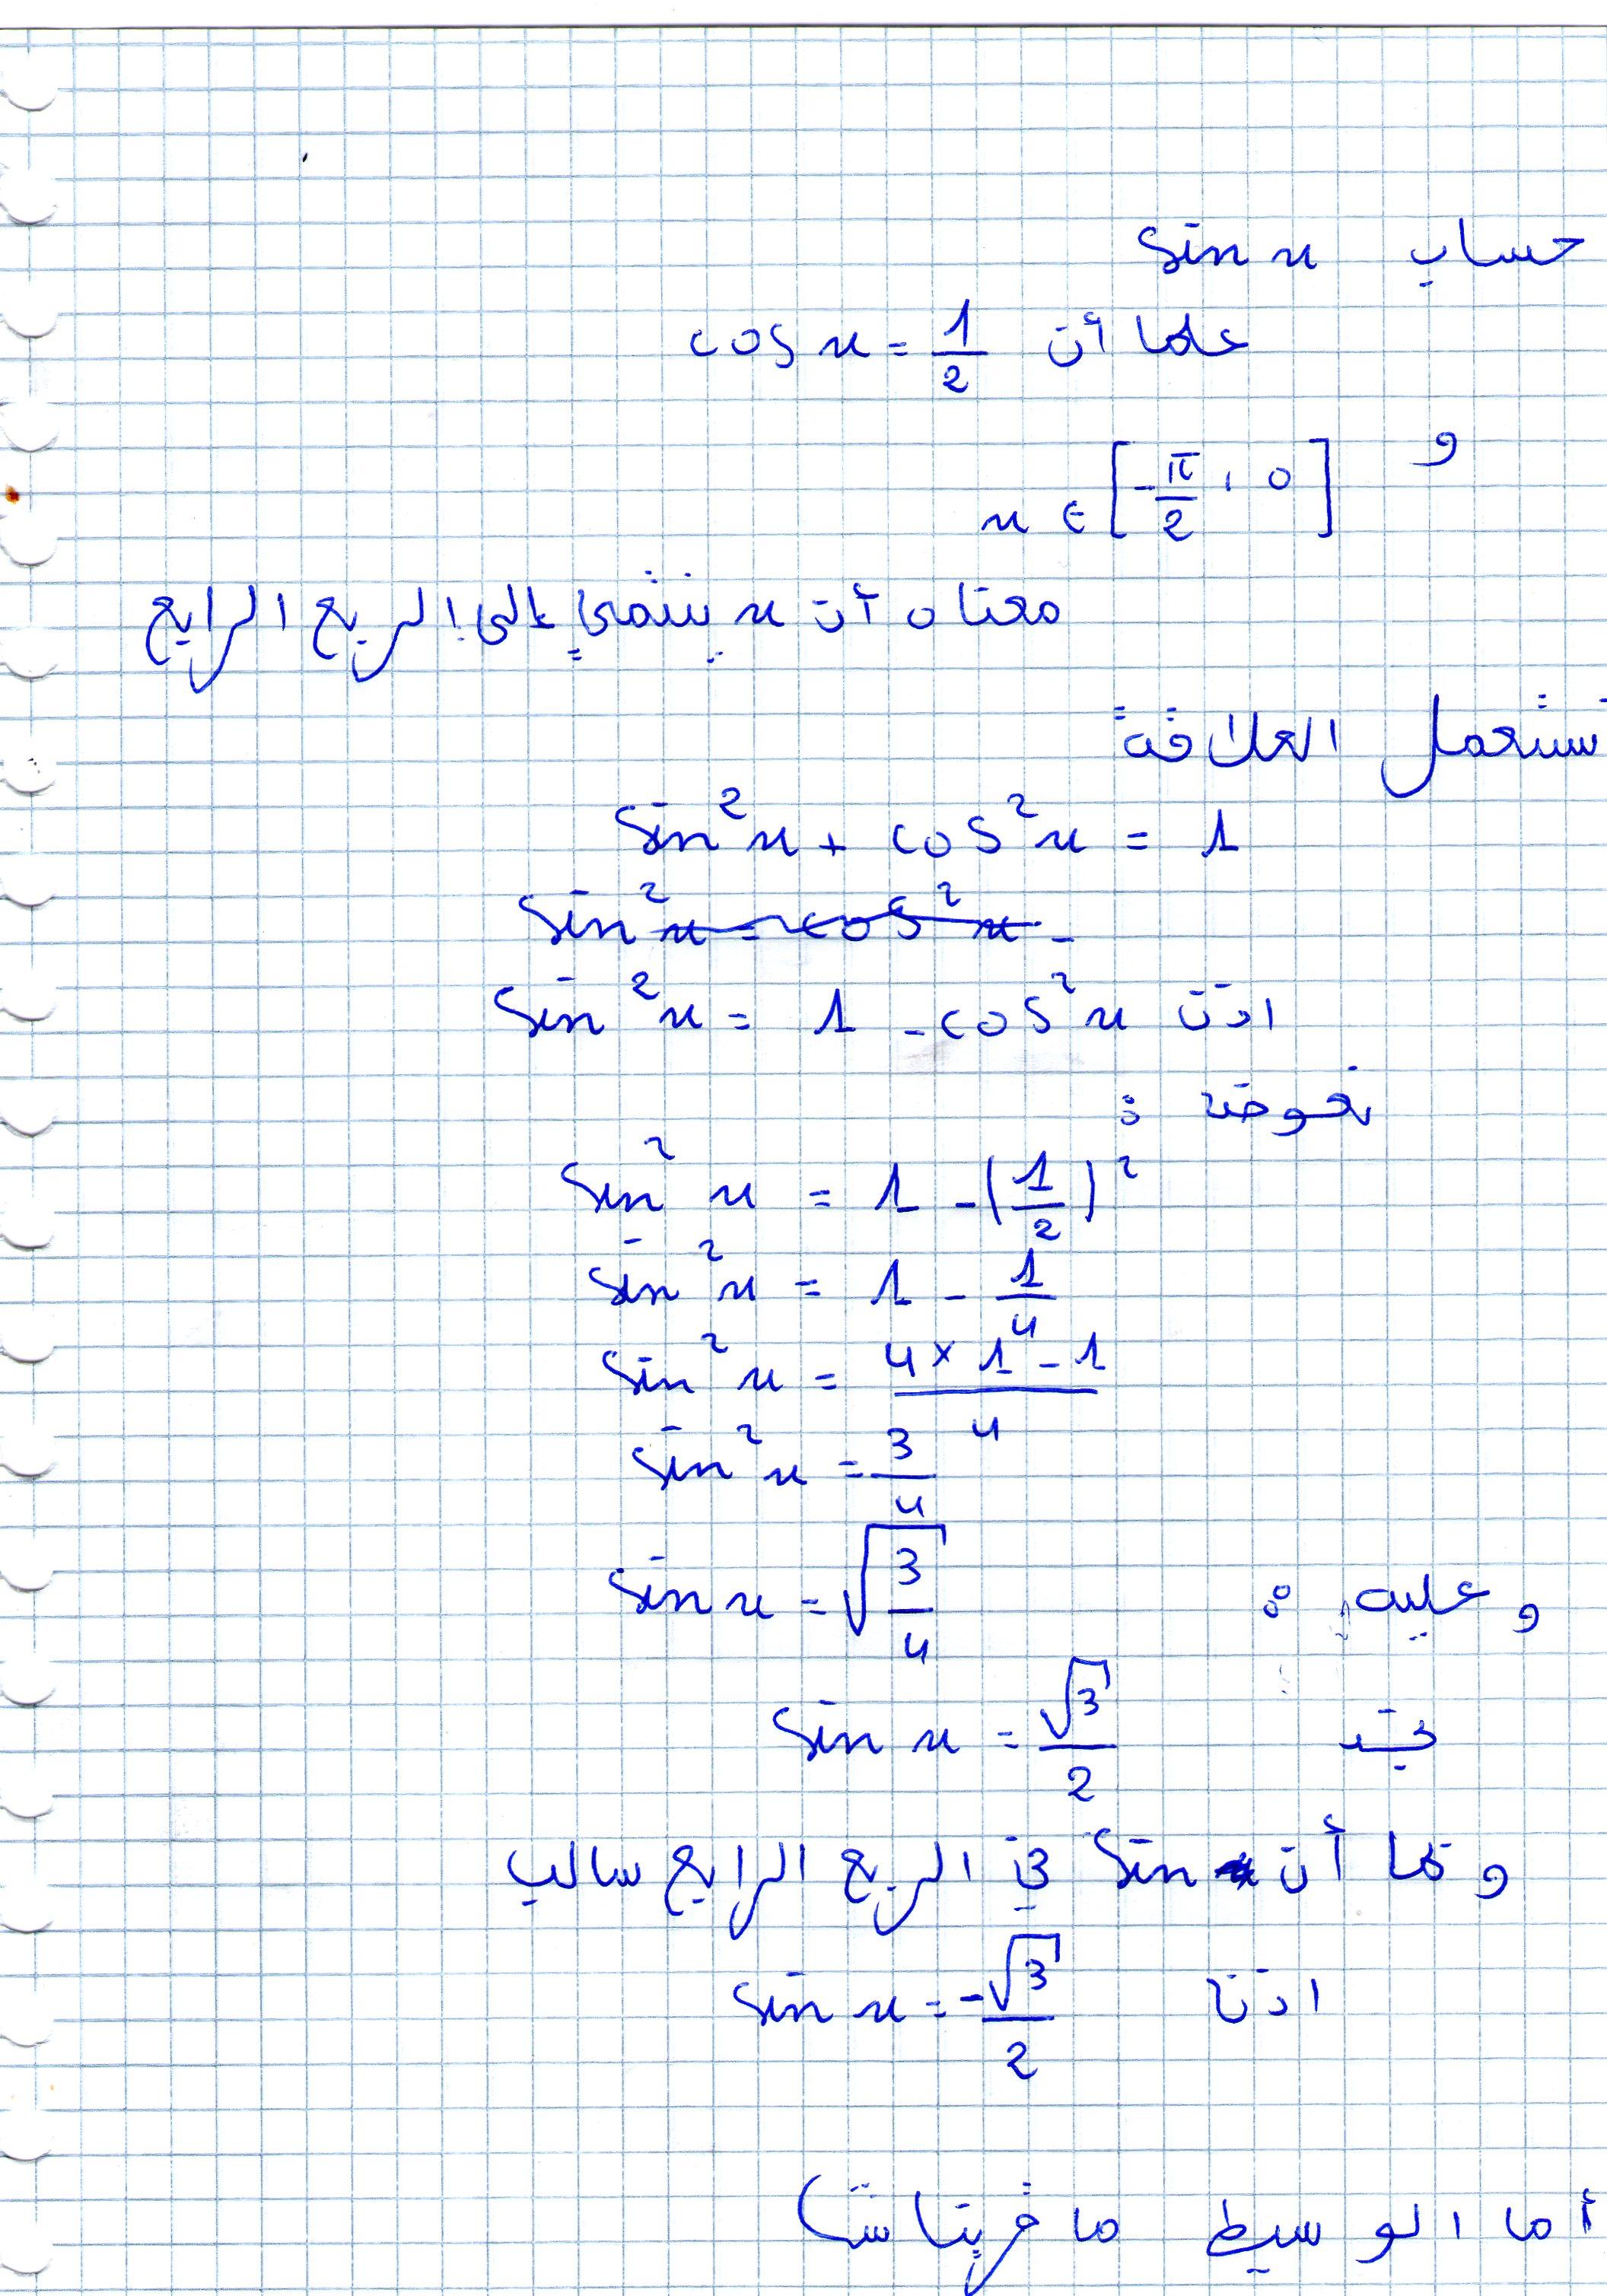 حساب sin x
علما أن cos x = 1/2
و
x ∈ [-π/2 , 0]
معناه أن x ينتمي إلى الربع الرابع
نستعمل العلاقة
sin²x + cos²x = 1
sin²x = cos²x -
اذن sin²x = 1 - cos²x
نعوض :
sin²x = 1 - (1/2)²
sin²x = 1 - 1/4
sin²x = (4 × 1 - 1)/4
sin²x = 3/4
وعليه : sin x = √(3/4)
نجد sin x = √3/2
وبما أن sin في الربع الرابع سالب
اذن sin x = -√3/2
أما الوسيط ما قريتاش)